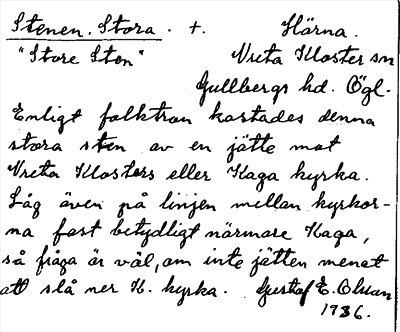 Stenen, Stora. +. Härna.
"Store Sten" Vreta Kloster sn
Gullbergs hd. Ögl.
Enligt folktron kastades denna
stora sten av en jätte mot
Vreta Klosters eller Kaga kyrka.
Låg även på linjen mellan kyrkor-
na fast betydligt närmare Kaga,
så fråga är väl, om inte jätten menat
att slå ner K. kyrka. Gustaf E. Olsson
1936.